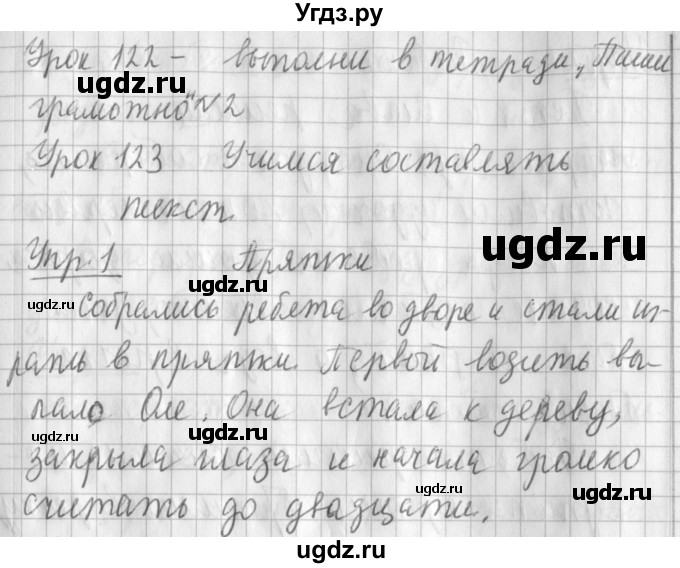 Угдз.ру
Урок 122 – выполни в тетради „Пиши
грамотно" №2
Урок 123 Учимся составлять
ugdz.ru
текст.
ugdz.ru
Упр. 1 Прятки
ugdz.ru
Собрались ребята во дворе и стали иг-
рать в прятки. Первой водить вы-
пало Оле. Она встала к дереву,
ugdz.ru
ugdz.ru
закрыла глаза и начала громко
ugdz.ru
ugdz.ru
считать до двадцати.
ugdz.ru